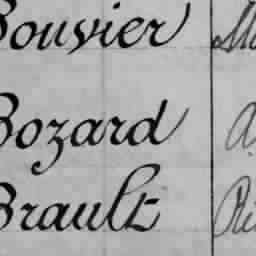 Bouvier
Bozard
Brault